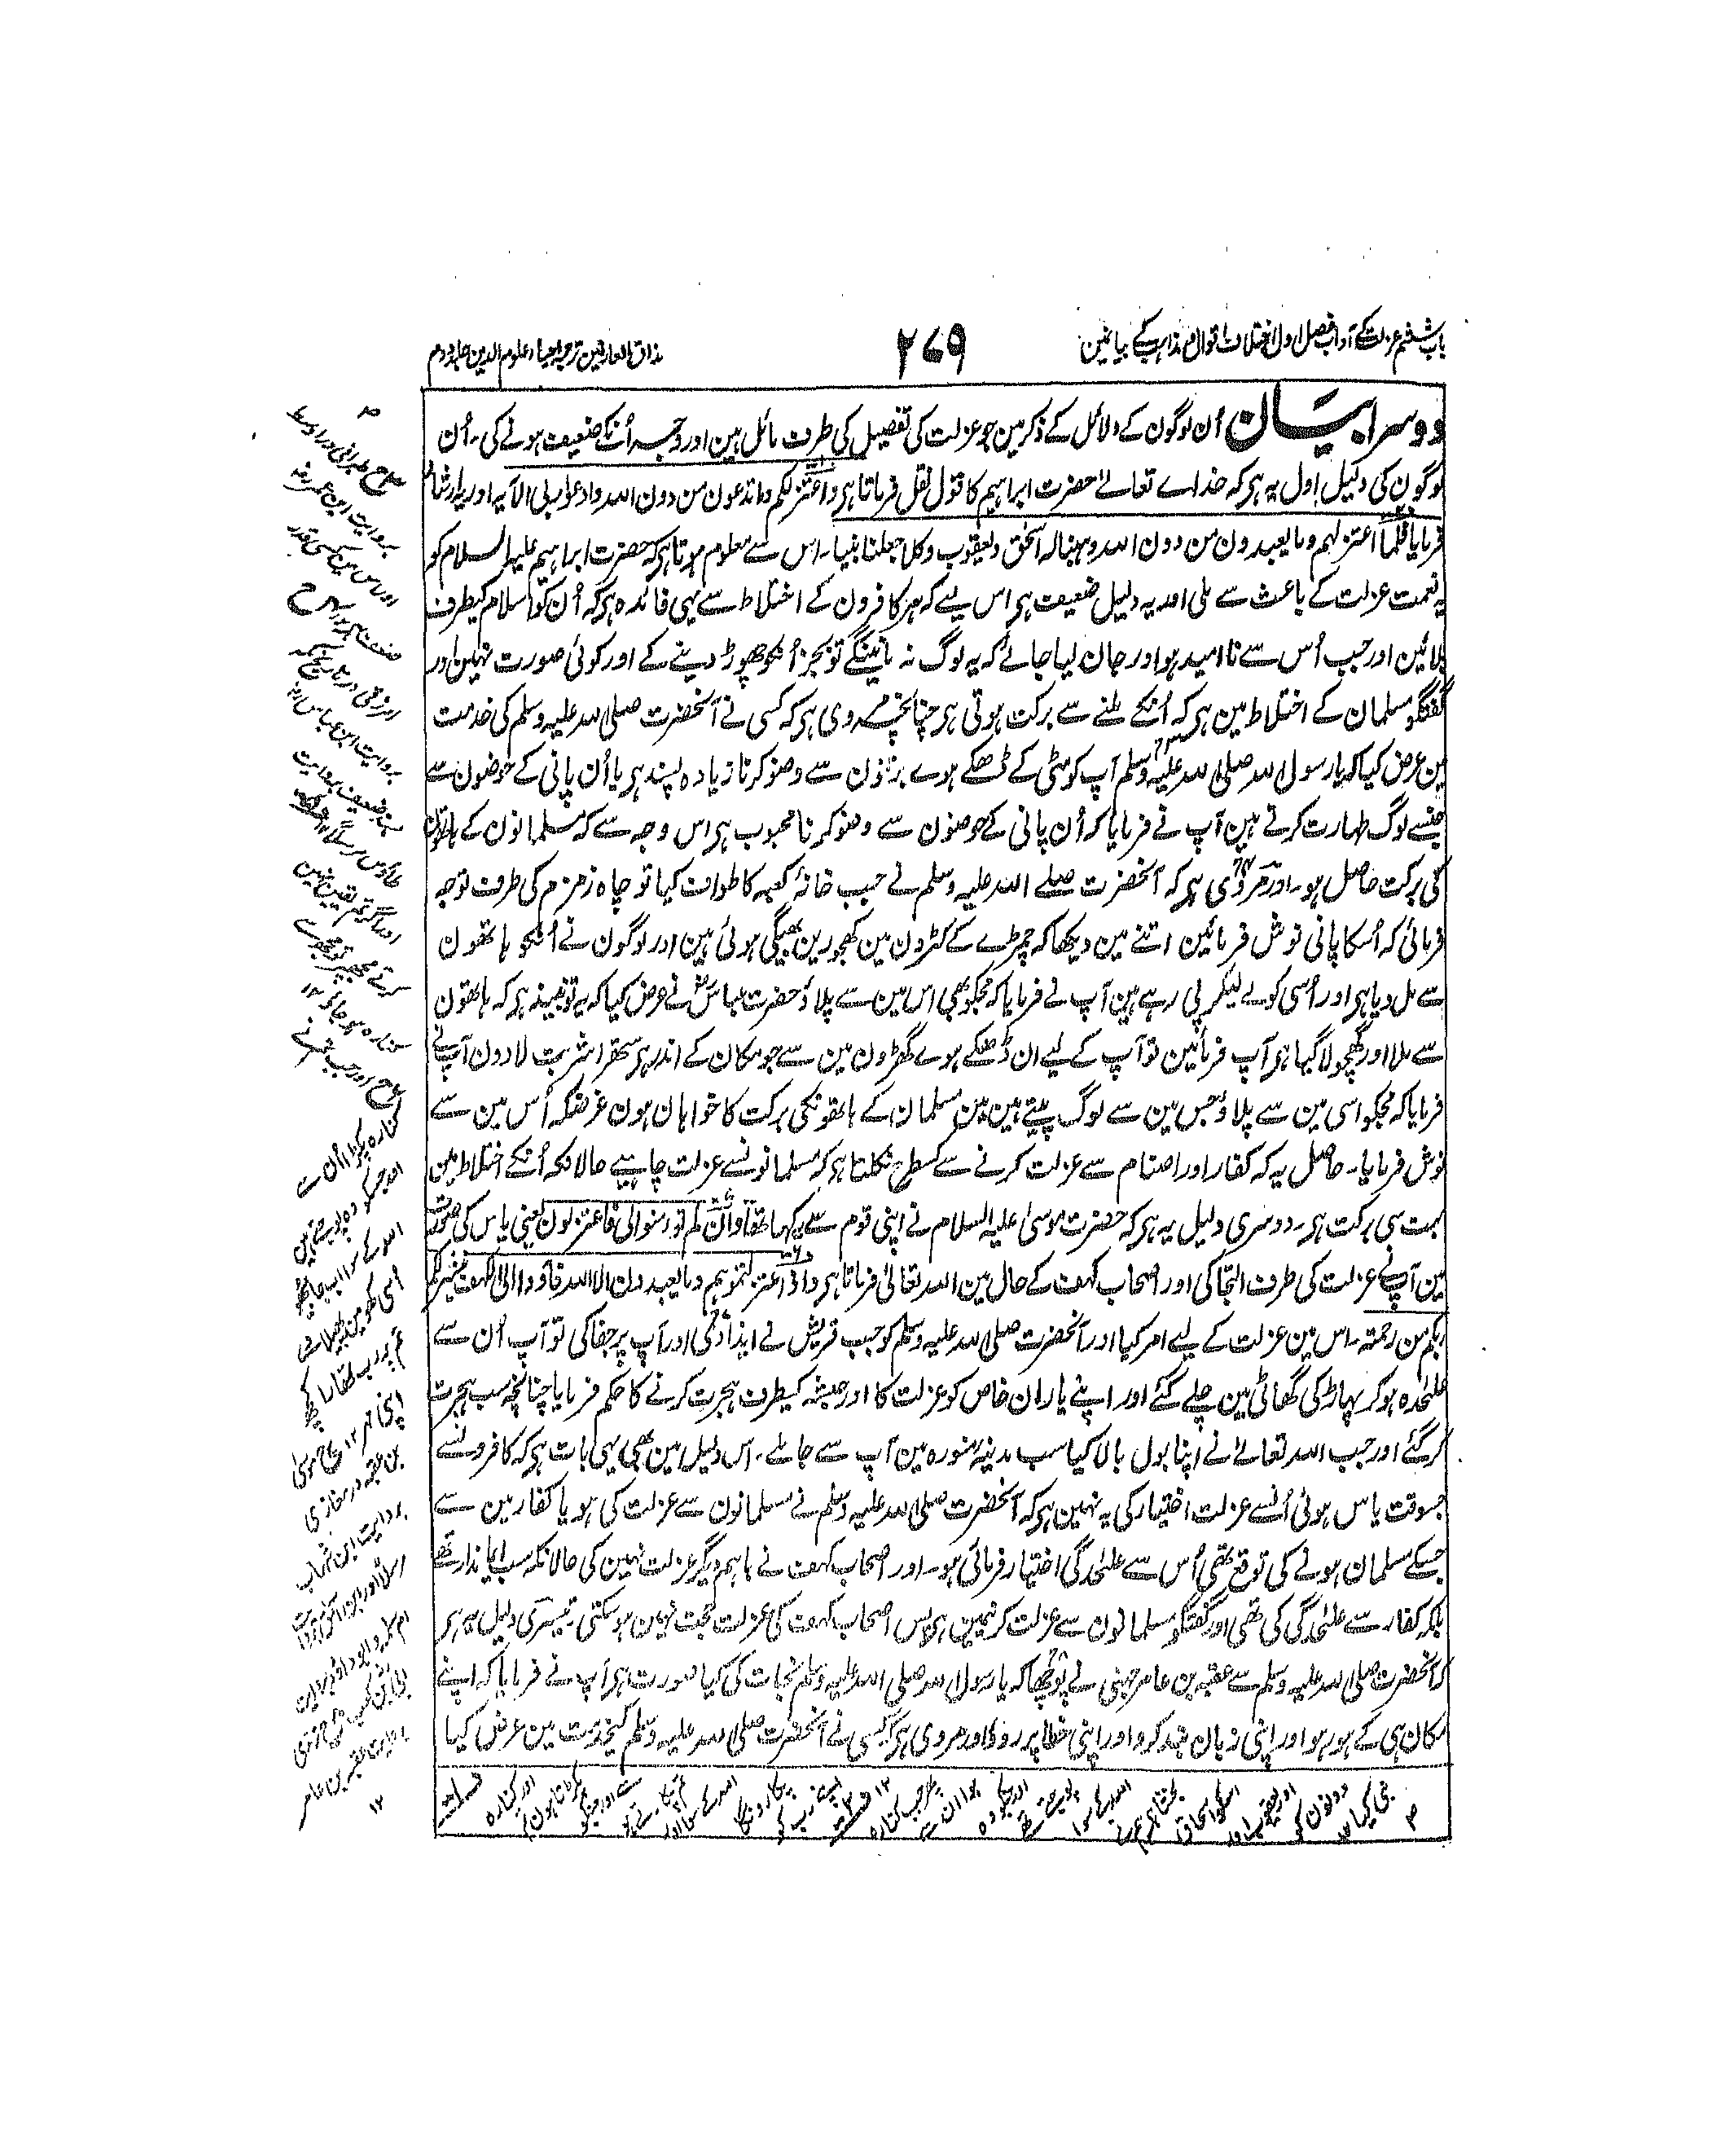 باب ششم عزلت کے آداب فصل اول اختلاف اقوال و مذاہب کے بیانمین
۲۷۹
مذاق العارفین ترجمہ احیاء علوم الدین جلد دوم
دوسرا بیان اُن لوگون کے دلائل کے ذکر مین جو عزلت کی تفصیل کی طرف مائل ہین اور وجہ اُنکے ضعیف ہونے کی ۔ اُن
لوگون کی دلیل اول یہ ہر کہ خداے تعالے حضرت ابراہیم کا قول نقل فرماتا ہر واعتزلکم وما تدعون من دون اللہ وادعو ربی الآیہ اور یہ ارشاد
فرمایا فلما اعتزلہم وما یعبدون من دون اللہ وہبنا لہ اسحٰق ویعقوب وکلا جعلنا نبیا ۔ اس سے معلوم ہوتا ہر کہ حضرت ابراہیم علیہ السلام کو
یہ نعمت عزلت کے باعث سے ملی اور یہ دلیل ضعیف ہر اس لیے کہ کافرون کے اختلاط سے یہی فائدہ ہر کہ اُن کو اسلام کیطرف
بلائین اور جب اُس سے نا امید ہو اور جان لیا جائے کہ یہ لوگ نہ مانینگے تو بجز اُنکو چھوڑ دینے کے اور کوئی صورت نہین اور
گفتگو مسلمان کے اختلاط مین ہر کہ اُنکے ملنے سے برکت ہوتی ہر چنانچہ مروی ہر کہ کسی نے آنحضرت صلی اللہ علیہ وسلم کی خدمت
مین عرض کیا کہ یا رسول اللہ صلی اللہ علیہ وسلم آپ کو مٹی کے ڈھکے ہوے برتنون سے وضو کرنا زیادہ پسند ہر یا اُن پانی کے حوضون سے
جنسے لوگ طہارت کرتے ہین آپ نے فرمایا کہ اُن پانی کے حوضون سے وضو کرنا محبوب ہر اس وجہ سے کہ مسلمانون کے ہاتھون
کی برکت حاصل ہو ۔ اور مروی ہر کہ آنحضرت صلے اللہ علیہ وسلم نے جب خانۂ کعبہ کا طواف کیا تو چاہ زمزم کی طرف توجہ
فرمائی کہ اُسکا پانی نوش فرمائین اتنے مین دیکھا کہ چمڑے کے کٹرون مین کھجورین بھیگی ہوئی ہین اور لوگون نے اُنکو ہاتھون
سے مل دیا ہر اور اُسی کو لے لیکر پی رہے ہین آپ نے فرمایا کہ مجکو بھی اس مین سے پلاؤ حضرت عباس نے عرض کیا کہ یہ تو نبیذ ہر کہ ہاتھون
سے ملا اور گھچولا گیا ہر آپ فرمائین تو آپ کے لیے ان ڈھکے ہوے گھڑون مین سے جو مکان کے اندر ہر ستھرا شربت لادون آپ نے
فرمایا کہ مجکو اسی مین سے پلاؤ جس مین سے لوگ پیتے ہین مین مسلمان کے ہاتھونکی برکت کا خواہان ہون غرضکہ اُس مین سے
نوش فرمایا ۔ حاصل یہ کہ کفار اور اصنام سے عزلت کرنے سے کسطرح نکلتا ہر کہ مسلمانونسے عزلت چاہیے حالانکہ اُنکے اختلاط مین
بہت سی برکت ہر ۔ دوسری دلیل یہ ہر کہ حضرت موسیٰ علیہ السلام نے اپنی قوم سے یہ کہا تھا وان لم تؤمنوا لی فاعتزلون یعنی یاس کی صورت
مین آپ نے عزلت کی طرف التجا کی اور اصحاب کہف کے حال مین اللہ تعالیٰ فرماتا ہر واذ اعتزلتموہم وما یعبدون الا اللہ فاووا الی الکہف ینشر لکم
ربکم من رحمتہ ۔ اس مین عزلت کے لیے امر کیا اور آنحضرت صلی اللہ علیہ وسلم کو جب قریش نے ایذا دی اور آپ پر جفا کی تو آپ اُن سے
علٰحدہ ہو کر پہاڑ کی گھاٹی مین چلے گئے اور اپنے یاران خاص کو عزلت کا اور حبشہ کیطرف ہجرت کرنے کا حکم فرمایا چنانچہ سب ہجرت
کر گئے اور جب اللہ تعالے نے اپنا بول بالا کیا سب مدینہ منورہ مین آپ سے جا ملے ۔ اس دلیل مین بھی یہی بات ہر کہ کافرونسے
جسوقت یاس ہوئی اُنسے عزلت اختیار کی یہ نہین ہر کہ آنحضرت صلی اللہ علیہ وسلم نے مسلمانون سے عزلت کی ہو یا کفار مین سے
جسکے مسلمان ہونے کی توقع تھی اُس سے علٰحدگی اختیار فرمائی ہو ۔ اور اصحاب کہف نے باہم دیگر عزلت نہین کی حالانکہ سب ایماندار تھے
بلکہ کفار سے علٰحدگی کی تھی اور گفتگو مسلمانون سے عزلت کرنیمین ہر پس اصحاب کہف کی عزلت حجت نہین ہو سکتی تیسری دلیل یہ ہر
کہ آنحضرت صلی اللہ علیہ وسلم سے عقبہ بن عامر جہنی نے پوچھا کہ یا رسول اللہ صلی اللہ علیہ وسلم نجات کی کیا صورت ہر آپ نے فرمایا کہ اپنے
مکان ہی کے ہو رہو اور اپنی زبان بند کرو اور اپنی خطا پر روؤ اور مروی ہر کہ کسی نے آنحضرت صلی اللہ علیہ وسلم کیخدمت مین عرض کیا
طبرانی در اوسط
بروایت ابن عمر
اور اس مین کسی قدر
ضعف ہر
ازرقی در تاریخ مکہ
بروایت ابن عباس
بسند ضعیف بروایت
طاؤس مرسلاً
اور اگر تم یقین نہین
کرتے مجھپر تو مجھسے
کنارہ ہو جاؤ ۱۲
اور جب تم نے
کنارہ پکڑا اُن سے
اور جنکو وہ پوجتے ہین
اللہ کے سوا اب جا بیٹھو
اُسی کھو مین پھیلا دے
تم پر رب تمھارا کچھ
اپنی مہر ۱۲ موسیٰ
بن عقبہ در مغازی
بروایت ابن شہاب
ام سلمہ و ابو داؤد
ترمذی
بروایت عقبہ بن عامر
۱۲
نبی کیا ۱۲
دونون کو
اور یعقوب اور
اسکو اسحاق
بخشا ہم نے
اللہ کے سوا
پوجتے تھے
اور جنکو وہ
ہوا ان سے
پھر جب کنارہ
۱۲
اپنے رب کو
پکارونگا
اللہ کے سوا اور
تم پکارتے ہو
سے اور جنکو
پکڑتا ہون تم
اور کنارہ